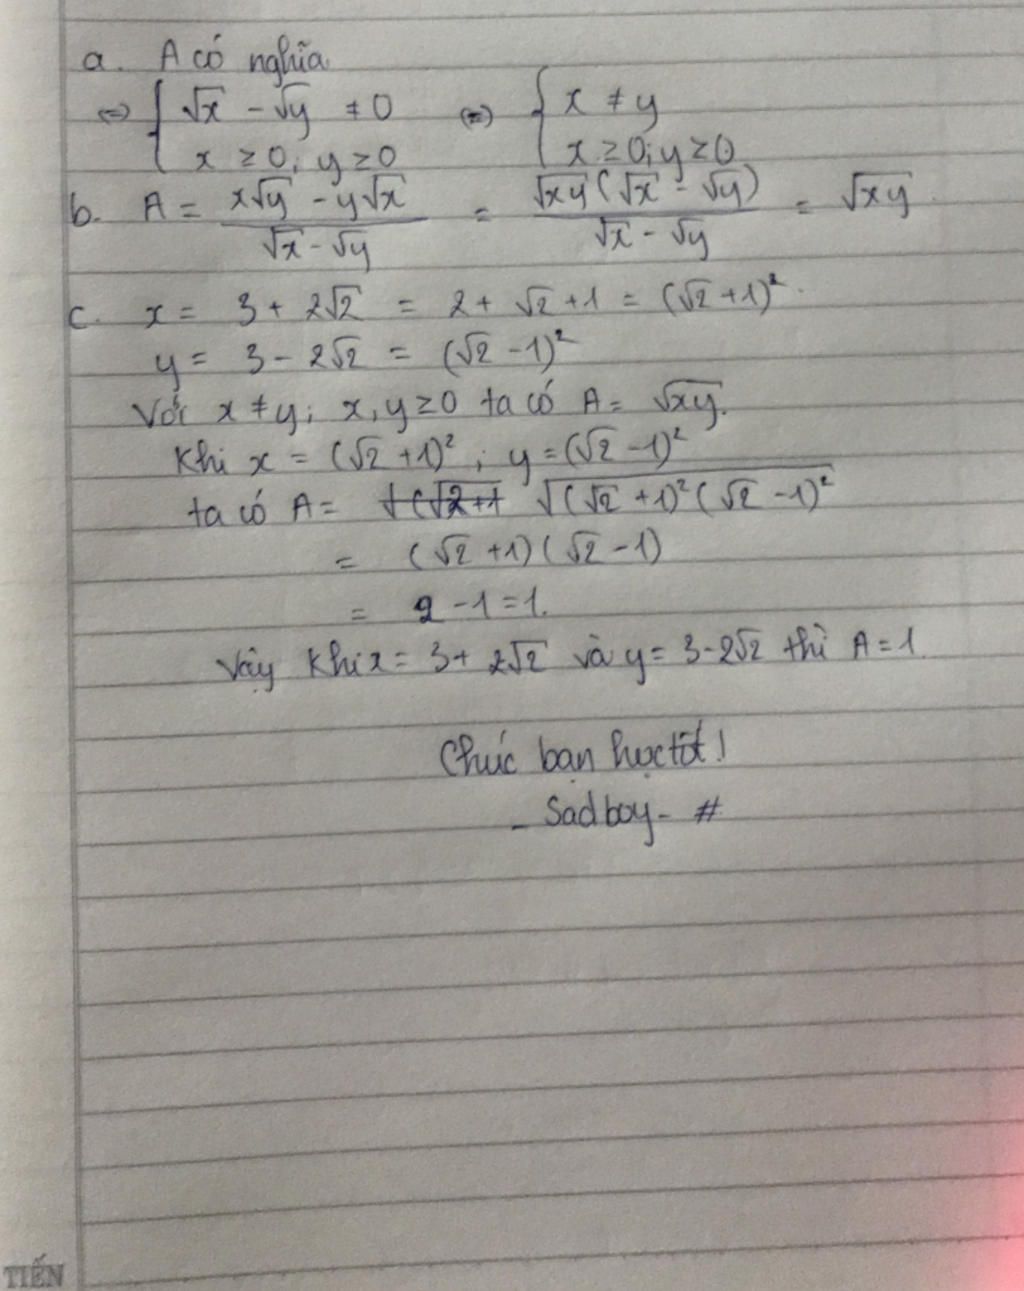 a. A có nghĩa
⇔ { √x - √y ≠ 0 ⇔ { x ≠ y
x ≥ 0; y ≥ 0 x ≥ 0; y ≥ 0
b. A = (x√y - y√x)/(√x - √y) = (√xy(√x - √y))/(√x - √y) = √xy
c. x = 3 + 2√2 = 2 + √2 + 1 = (√2 + 1)²
y = 3 - 2√2 = (√2 - 1)²
Với x ≠ y; x, y ≥ 0 ta có A = √xy.
Khi x = (√2 + 1)²; y = (√2 - 1)²
ta có A = √((√2 + 1)²(√2 - 1)²)
= (√2 + 1)(√2 - 1)
= 2 - 1 = 1.
Vậy khi x = 3 + 2√2 và y = 3 - 2√2 thì A = 1
Chúc bạn học tốt!
- Sadboy - #
TIẾN